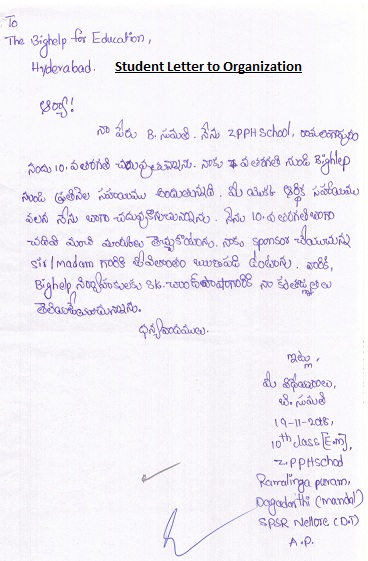 To
The Bighelp for Education,
Hyderabad.
Student Letter to Organization
ఆర్యా!
నా పేరు B. సుమతి. నేను ZPPH School, రామలింగాపురం
నందు 10. వ తరగతి చదువుతున్నాను. నాకు 7 వ తరగతి నుండి Bighlep
నుండి ప్రతినెల సహాయము అందుతున్నది. మీ యొక్క ఆర్థిక సహాయము
వలన నేను బాగా చదువుకొనుచున్నాను. నేను 10. వ తరగతి బాగా
చదివి మంచి మార్కులు తెచ్చుకొంటాను. నాకు sponsor చేయుచున్న
Sir/Madam గారికి జీవితాంతం ఋణపడి ఉంటాను. వారికి,
Bighelp నిర్వాహకులకు SK. గారికి నా కృతజ్ఞతలు
తెలియజేయుచున్నాను.
ధన్యవాదములు.
ఇట్లు,
మీ విధేయురాలు,
బి. సుమతి
19-11-2018,
10th class [E.m],
Z.PPHschool
Ramalinga puram,
Dagadarthi (mandal)
SPSR Nellore (D.T)
A.P.